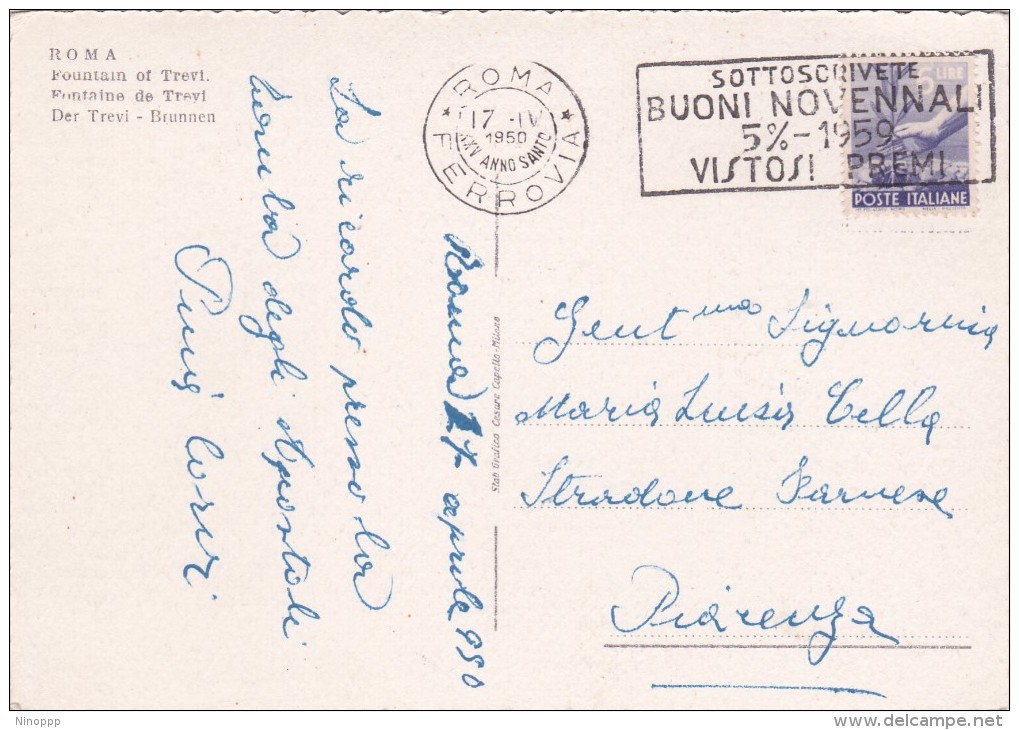 ROMA
Fountain of Trevi.
Fontaine de Trevi
Der Trevi - Brunnen
ROMA
17 -IV
1950
XXV ANNO SANTO
FERROVIA
SOTTOSCRIVETE
BUONI NOVENNALI
5%-1959
VISTOSI PREMI
5 LIRE
POSTE ITALIANE
Roma 17 aprile 950
La ricordo presso la
tomba degli Apostoli
Stab Grafico Cesare Capello-Milano
Gent ma Signorina
Maria Luisa Cella
Stradone Farnese
Piacenza
Ninoppp
delcampe.net